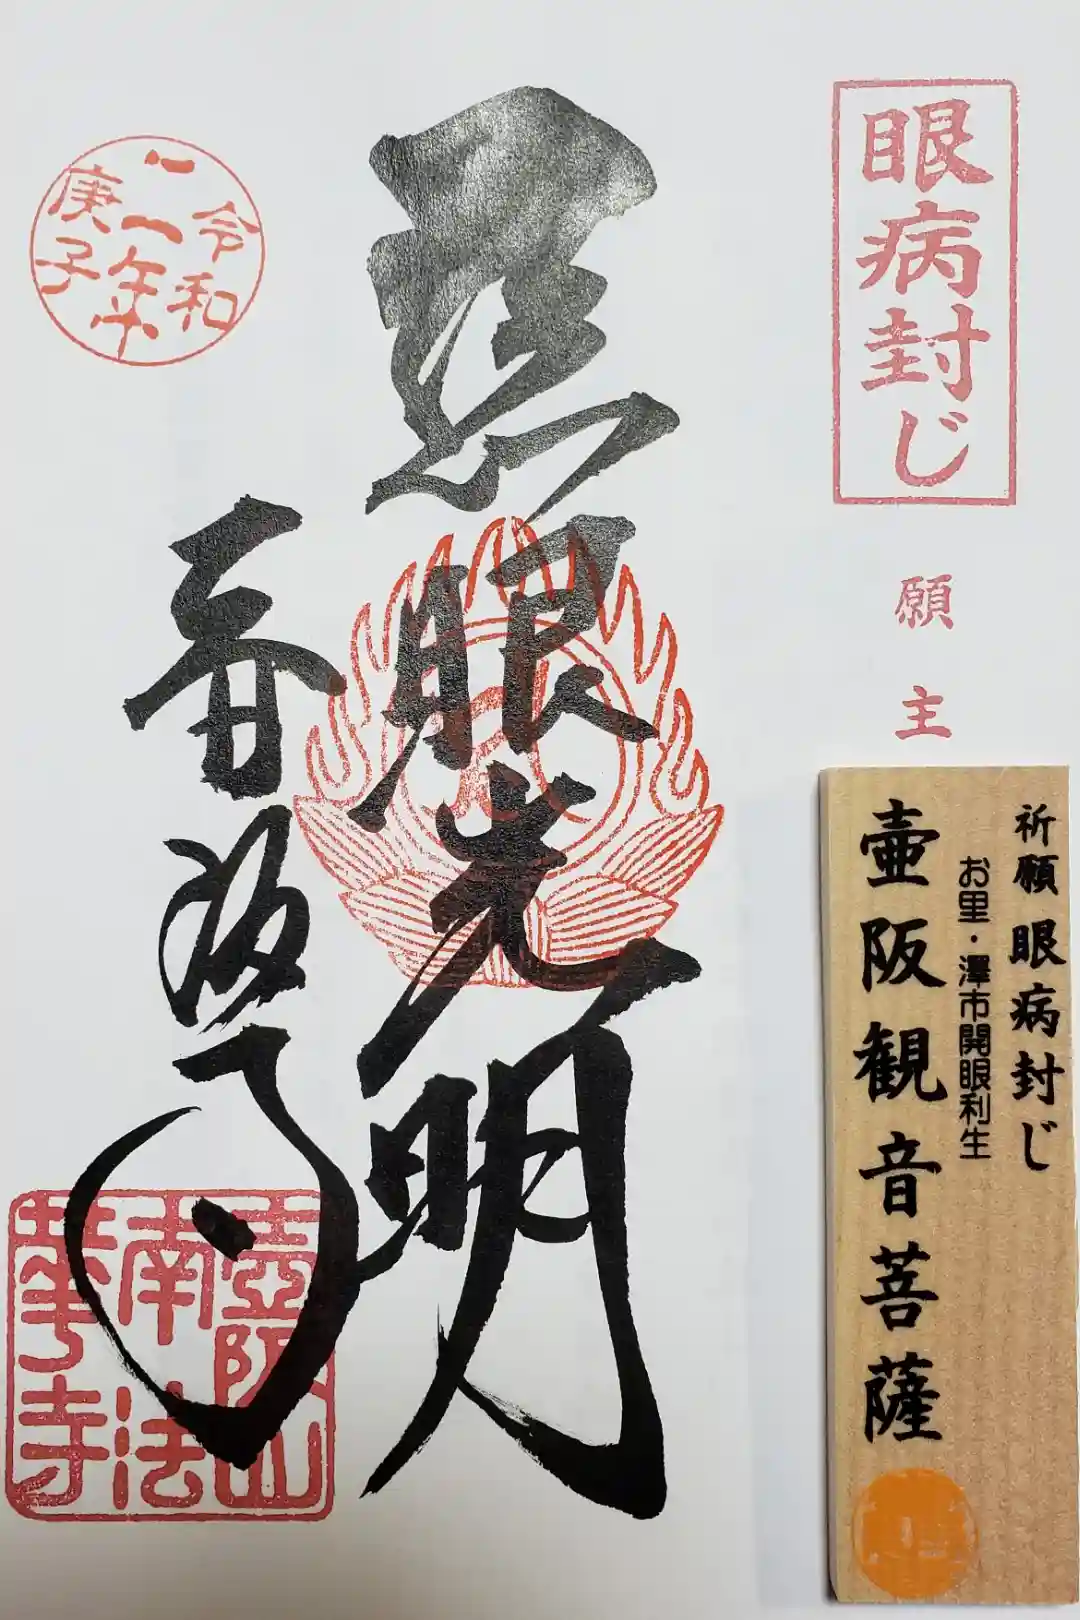 眼病封じ
願主
祈願 眼病封じ
お里・澤市開眼利生
壷阪観音菩薩
眼光明
令和
二年
庚子
壺阪山
南法
華寺